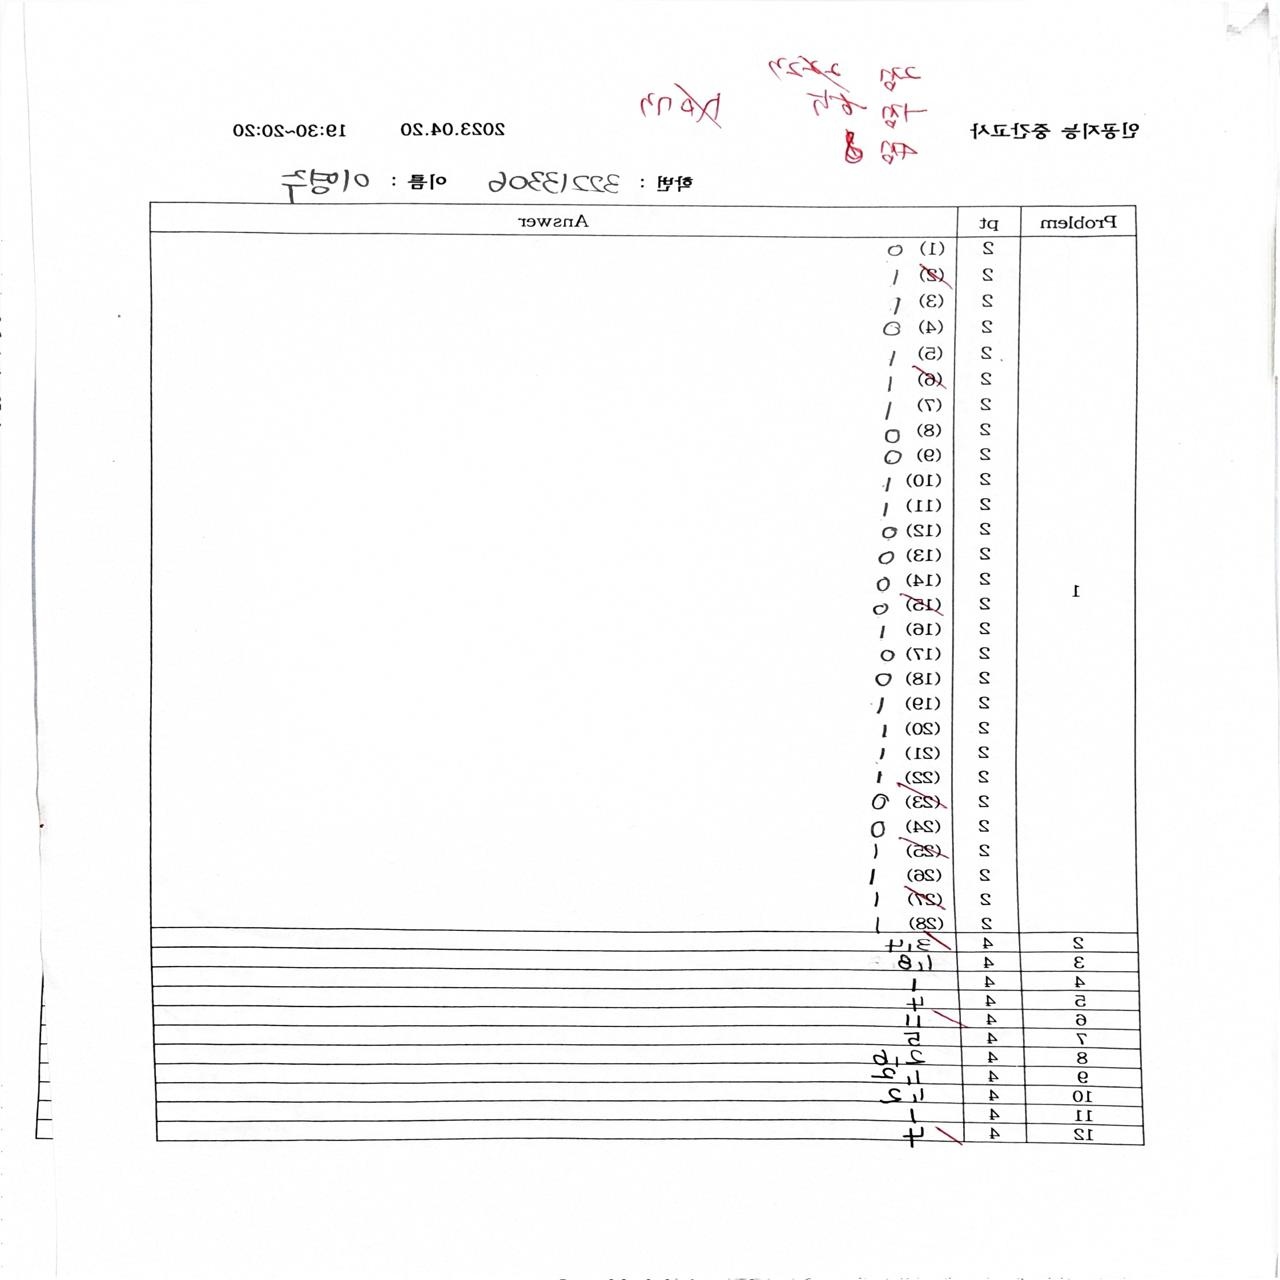 인공지능 중간고사 2023.04.20 19:30~20:20
학번 : 32213306 이름 : 이영주
Problem pt Answer
2 (1) 0
2 (2) 1
2 (3) 1
2 (4) 0
2 (5) 1
2 (6) 1
2 (7) 1
2 (8) 0
2 (9) 0
2 (10) 1
2 (11) 1
2 (12) 0
2 (13) 0
2 (14) 0
1 2 (15) 0
2 (16) 1
2 (17) 0
2 (18) 0
2 (19) 1
2 (20) 1
2 (21) 1
2 (22) 1
2 (23) 0
2 (24) 0
2 (25) 1
2 (26) 1
2 (27) 1
2 (28) 1
2 4
3 4
4 4
5 4
6 4
7 4
8 4
9 4
10 4
11 4
12 4